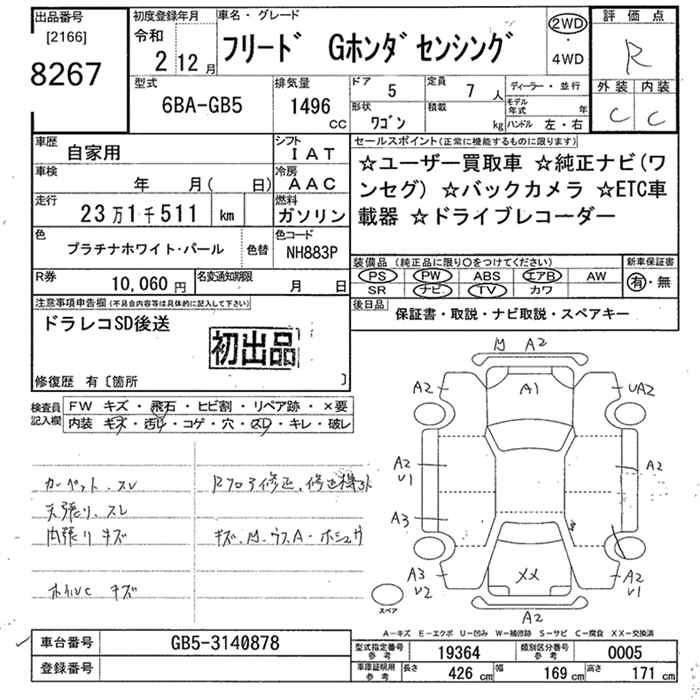 出品番号
[2166]
8267
初度登録年月
令和
2年12月
車名・グレード
フリード Gホンダセンシング
2WD
・
4WD
評価点
R
外装 内装
C C
型式
6BA-GB5
排気量
1496
CC
ドア
5
定員
7人
形状
ワゴン
積載
kg
ディーラー・並行
モデル年式 年
ハンドル 左・右
車歴
自家用
シフト
IAT
車検
年 月( 日)
冷房
AAC
走行
23万1千511 km
燃料
ガソリン
色
プラチナホワイト・パール
色替
色コード
NH883P
R券
10,060円
名変通知期限
月 日
セールスポイント(正常に機能するものに限ります)
☆ユーザー買取車 ☆純正ナビ(ワ
ンセグ) ☆バックカメラ ☆ETC車
載器 ☆ドライブレコーダー
装備品 (純正品に限り○をつけてください)
PS PW ABS エアB AW
SR ナビ TV カワ
新車保証書
有・無
後日品
保証書・取説・ナビ取説・スペアキー
注意事項申告欄(不具合内容等は具体的に記入して下さい)
ドラレコSD後送
初出品
修復歴 有〔箇所 〕
検査員記入欄
FW キズ・飛石・ヒビ割・リペア跡・×要
内装 キズ・汚れ・コゲ・穴・スレ・キレ・破レ
カーペット、スレ
天張り、スレ
内張り キズ
ホイルC キズ
Rフロア修正、修正機
キズ、M、ウスA・
M A2
A2
A1
UA2
A2
U1
A2
A3
A3
U2
XX
A2
U1
A2
スペア
A-キズ E-エクボ U-凹み W-補修跡 S-サビ C-腐食 XX-交換済
車台番号
GB5-3140878
登録番号
型式指定番号
参考
19364
類別区分番号
参考
0005
車庫証明用
参考
長さ
426 cm
幅
169 cm
高さ
171 cm